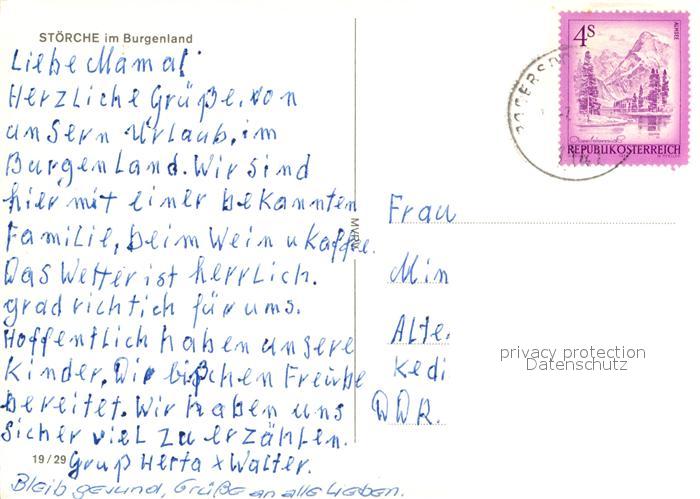 STÖRCHE im Burgenland
Liebe Mama!
Herzliche Grüße, von
unsern Urlaub, im
Burgenland. Wir sind
hier mit einer bekannten
Familie, beim Wein u Kaffe.
Das Wetter ist herrlich.
grad richtich für ums.
Hoffentlich haben unsere
Kinder, Dir bißchen Freude
bereitet. Wir haben uns
sicher viel zu erzählen.
19/29 Gruß Herta x Walter.
Bleib gesund, Grüße an alle Lieben.
4s
ALMSEE
REPUBLIK ÖSTERREICH
Frau
Min
Alte
Kedi
DDR.
privacy protection
Datenschutz